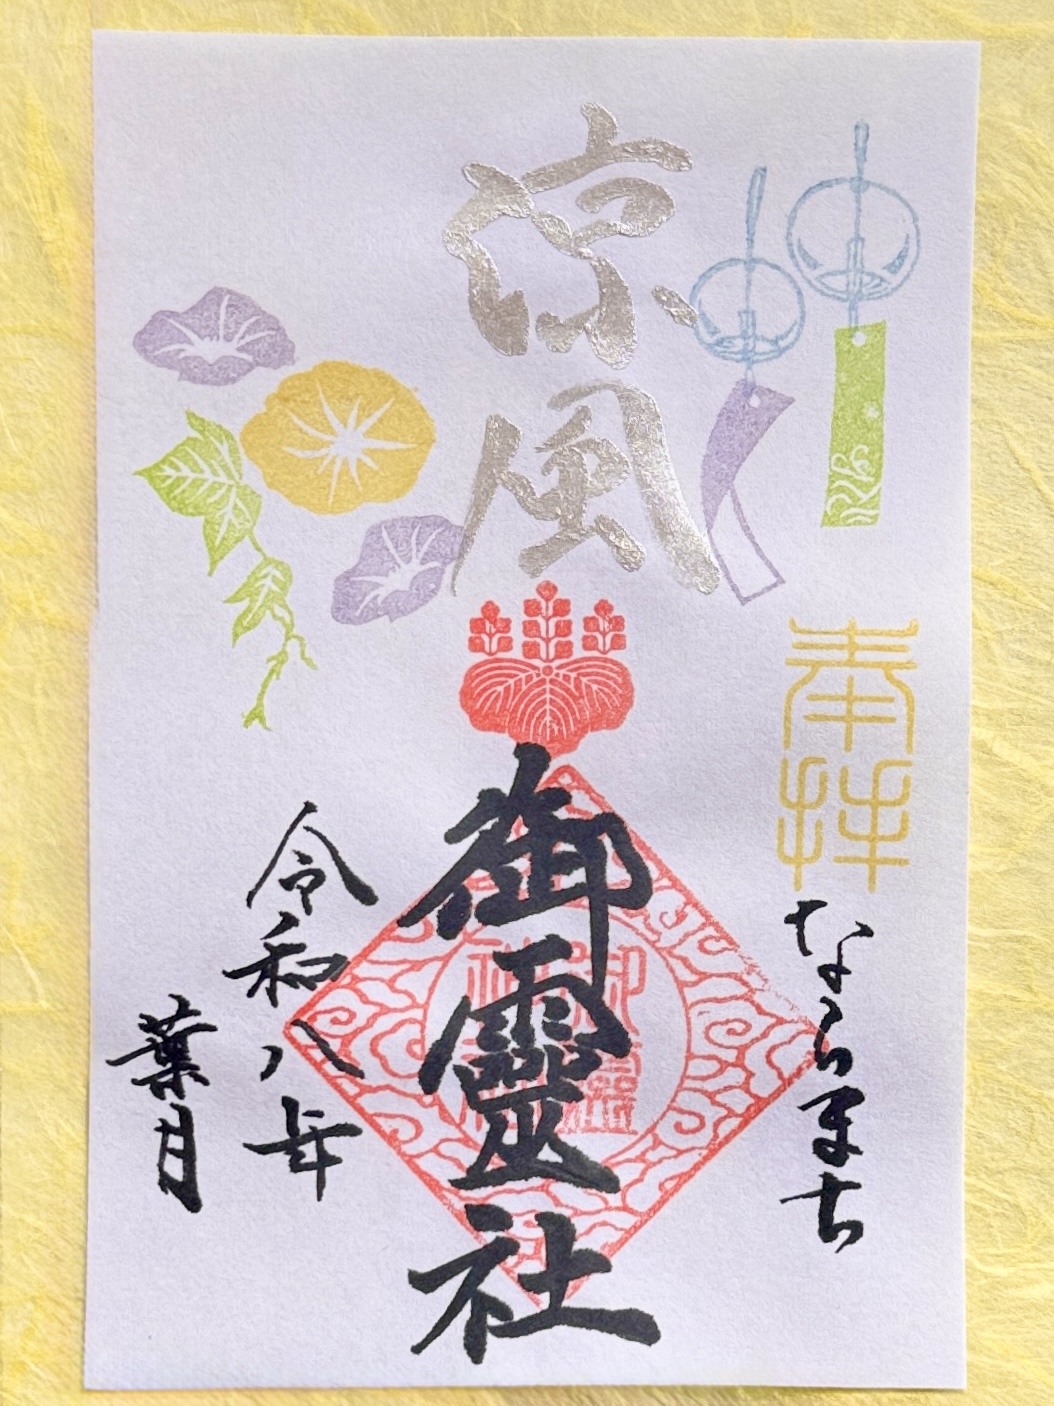 奉拝
ならまち
涼風
御靈社
令和八年
葉月